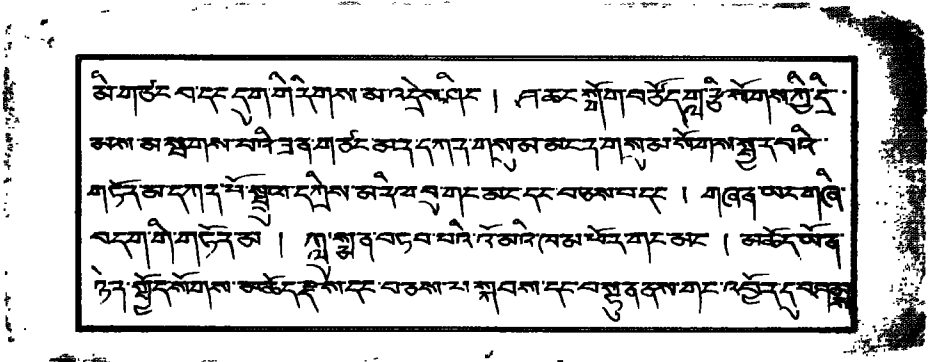 མི་གཙང་བ་དང་དུག་གི་རིགས་མ་འདྲེས་ཤིང་། ཤ་ཆང་སྒོག་བཙོང་གླ་རྩི་སོགས་ཀྱི་དྲི་
མས་མ་སྦགས་པའི་ཟན་གཙང་མར་དཀར་གསུམ་མངར་གསུམ་སོགས་སྦྱར་བའི་
གཏོར་མ་དཀར་པོ་སྦྲུལ་དཀྲིས་མ་རིལ་བུ་གང་མང་དང་བཅས་པ་དང་། གཞན་ཡང་གཞི་
བདག་གི་གཏོར་མ། ཀླུ་སྨན་བཏབ་པའི་འོ་མའི་ཁ་མ་ཕོར་གང་མང་། མཆོད་ཡོན་
ཉེར་སྤྱོད་སོགས་མཆོད་རྫས་དང་བཅས་པ་སྐབས་དང་བསྟུན་ནས་གང་འབྱོར་དུ་བཤམས།